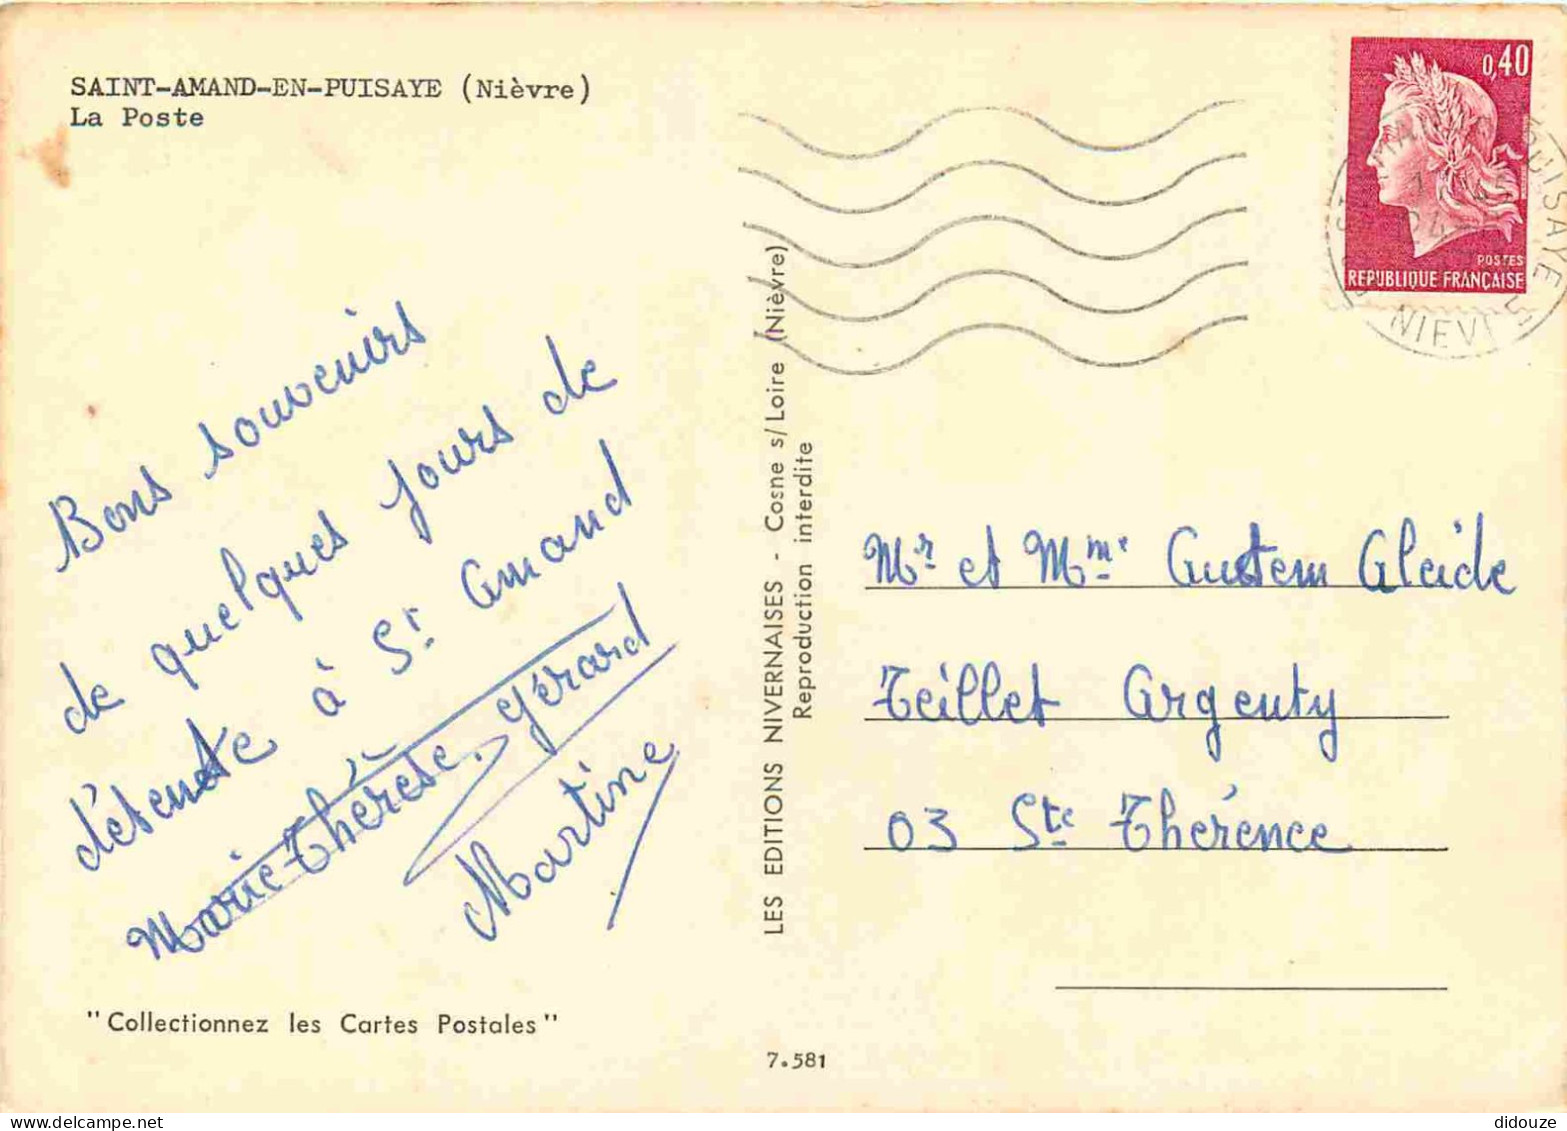 SAINT-AMAND-EN-PUISAYE (Nièvre)
La Poste
0,40
POSTES
REPUBLIQUE FRANÇAISE
PUISAYE
Bons souvenirs
de quelques jours de
détente à St Amand
Marie-Thérèse. Gérard
Martine
LES EDITIONS NIVERNAISES - Cosne s/Loire (Nièvre)
Reproduction interdite
Mr et Mme Alcide
Teillet Argenty
03 Ste Thérence
"Collectionnez les Cartes Postales"
7.581
didouze